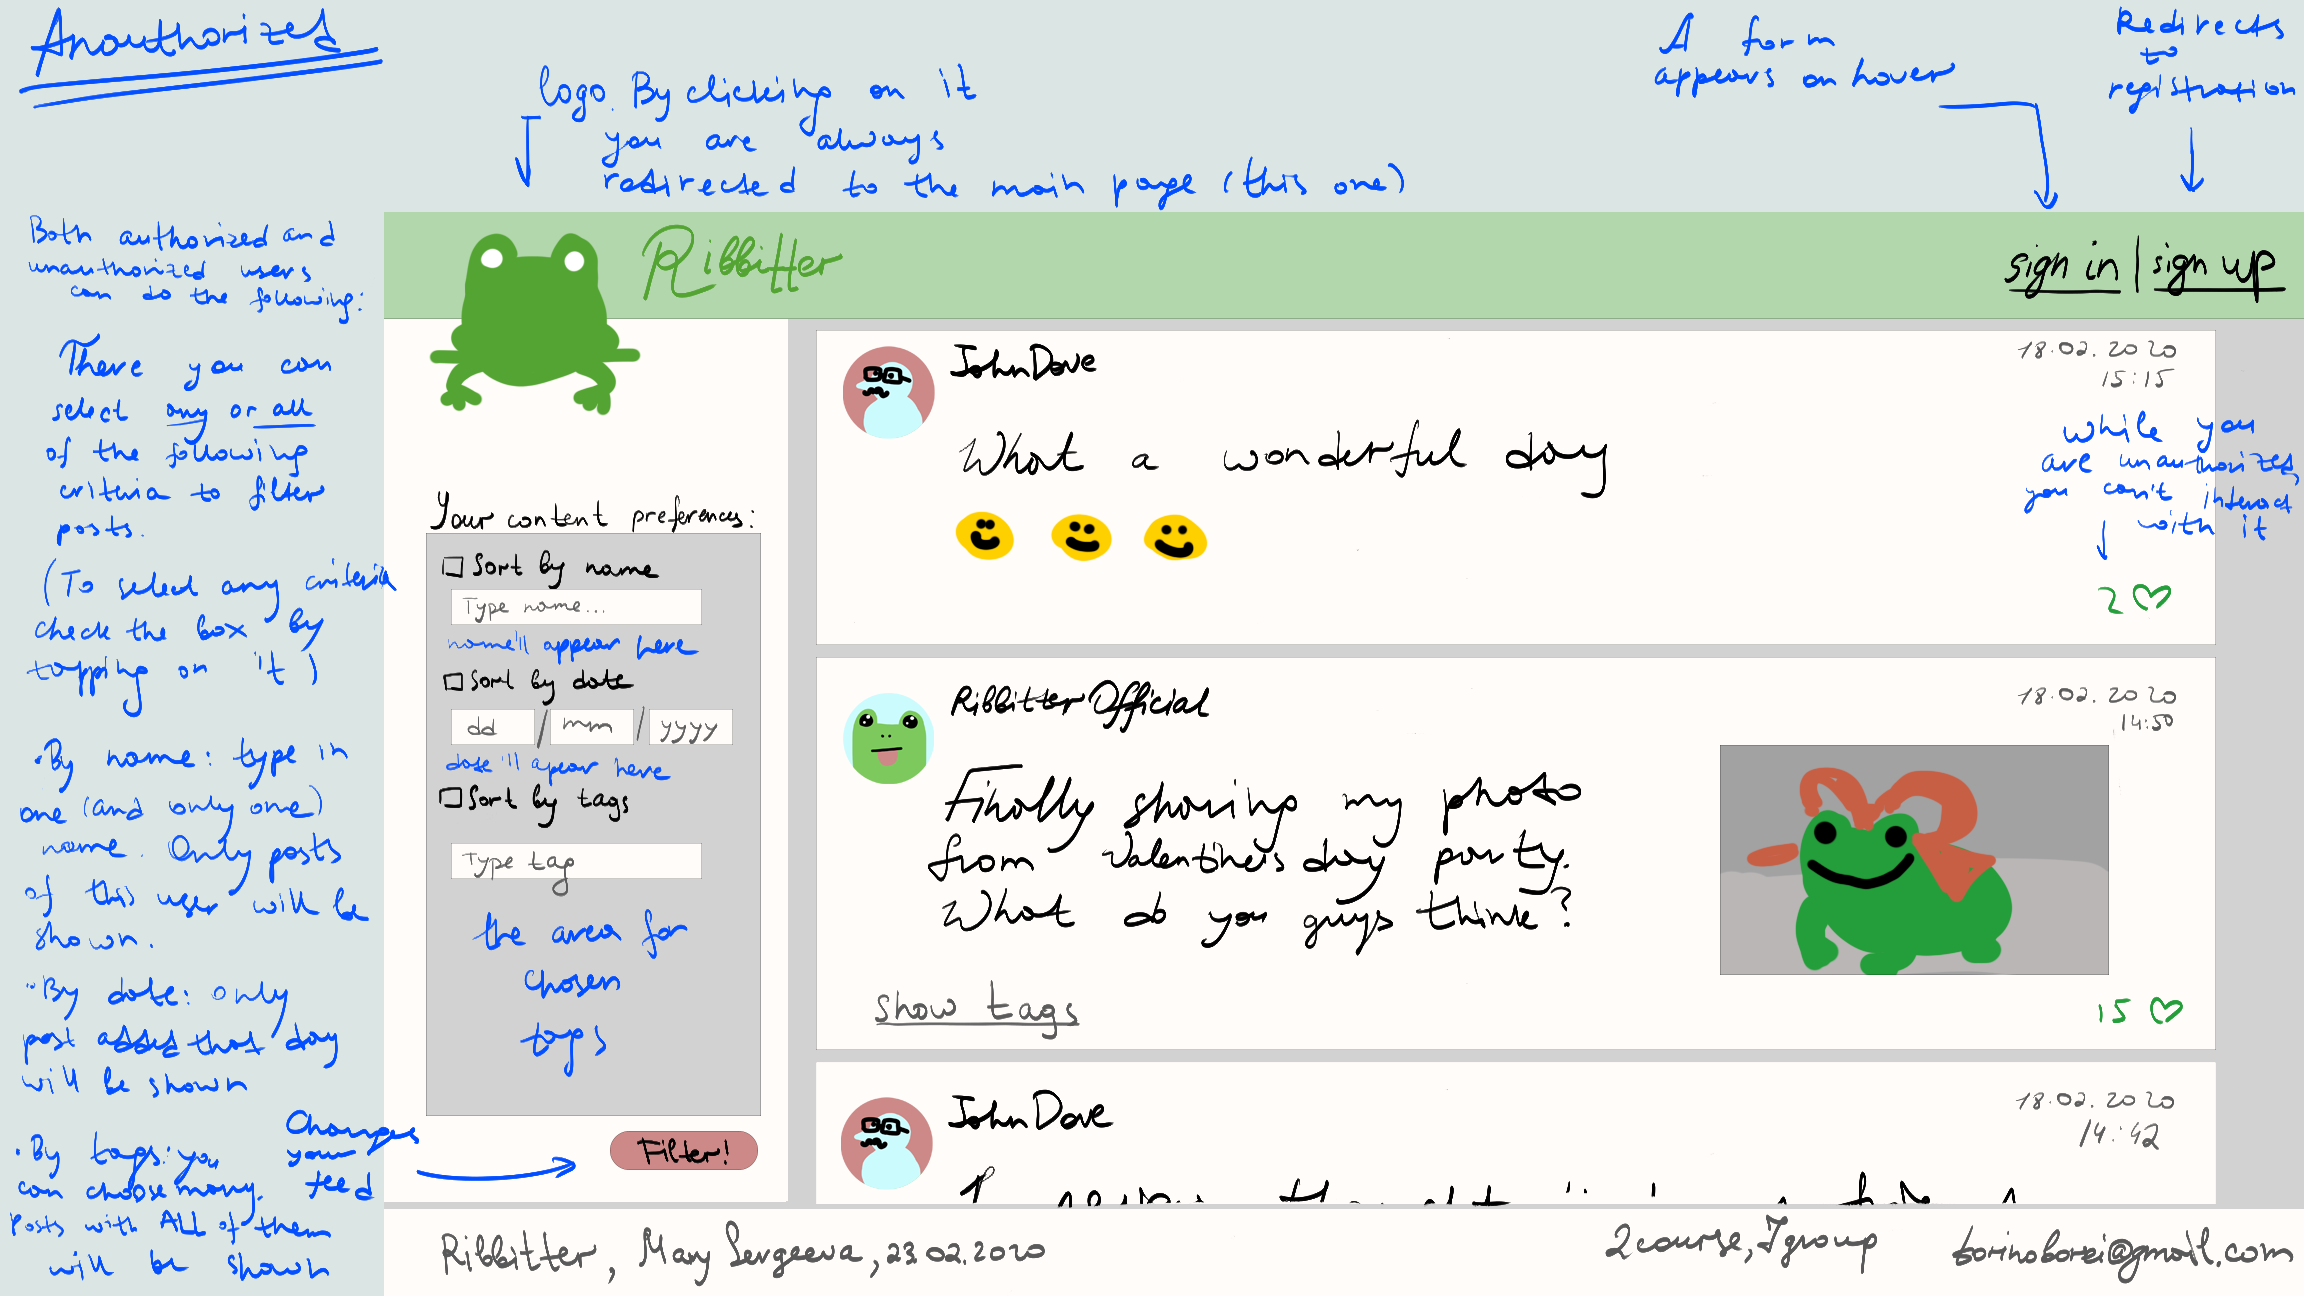 Anauthorized
logo. By clicking on it
you are always
redirected to the main page (this one)
A form
appears on hover
Redirects
to
registration
Both authorized and
unauthorized users
can do the following:
There you can
select any or all
of the following
criteria to filter
posts.
(To select any criteria
check the box by
tapping on it)
• By name: type in
one (and only one)
name. Only posts
of this user will be
shown.
• By date: only
post added that day
will be shown
• By tags: you
can choose many.
Posts with ALL of them
will be shown
Changes
your
feed
Ribbitter
sign in | sign up
Your content preferences:
Sort by name
Type name...
name'll appear here
Sort by date
dd / mm / yyyy
date'll apear here
Sort by tags
Type tag
the area for
chosen
tags
Filter!
JohnDove
18.02.2020
15:15
What a wonderful day
while you
are unauthorized,
you can't interact
with it
2
RibbitterOfficial
18.02.2020
14:50
Finally sharing my photo
from Valentine's day party.
What do you guys think?
show tags
15
JohnDove
18.02.2020
14:42
Ribbitter, Mary Sergeeva, 23.02.2020
2course, 7group